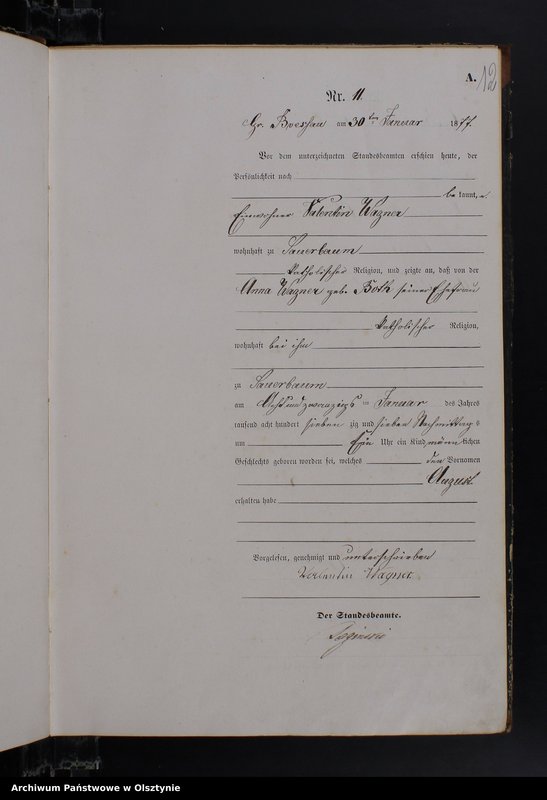 A.
12
Nr. 11.
Gr. Boessau am 30ten Januar 1877.
Vor dem unterzeichneten Standesbeamten erschien heute, der
Persönlichkeit nach
bekannt, e.
Einwohner Valentin Wagner
wohnhaft zu Lauerbaum
katholischer Religion, und zeigte an, daß von der
Anna Wagner geb. Both seiner Ehefrau
katholischer Religion,
wohnhaft bei ihm
zu Lauerbaum
am Achtundzwanzigs in Januar des Jahres
tausend acht hundert sieben zig und sieben Nachmittags
um Ein Uhr ein Kind männlichen
Geschlechts geboren worden sei, welches den Vornamen
August
erhalten habe
Vorgelesen, genehmigt und unterschrieben
Valentin Wagner.
Der Standesbeamte.
Archiwum Państwowe w Olsztynie